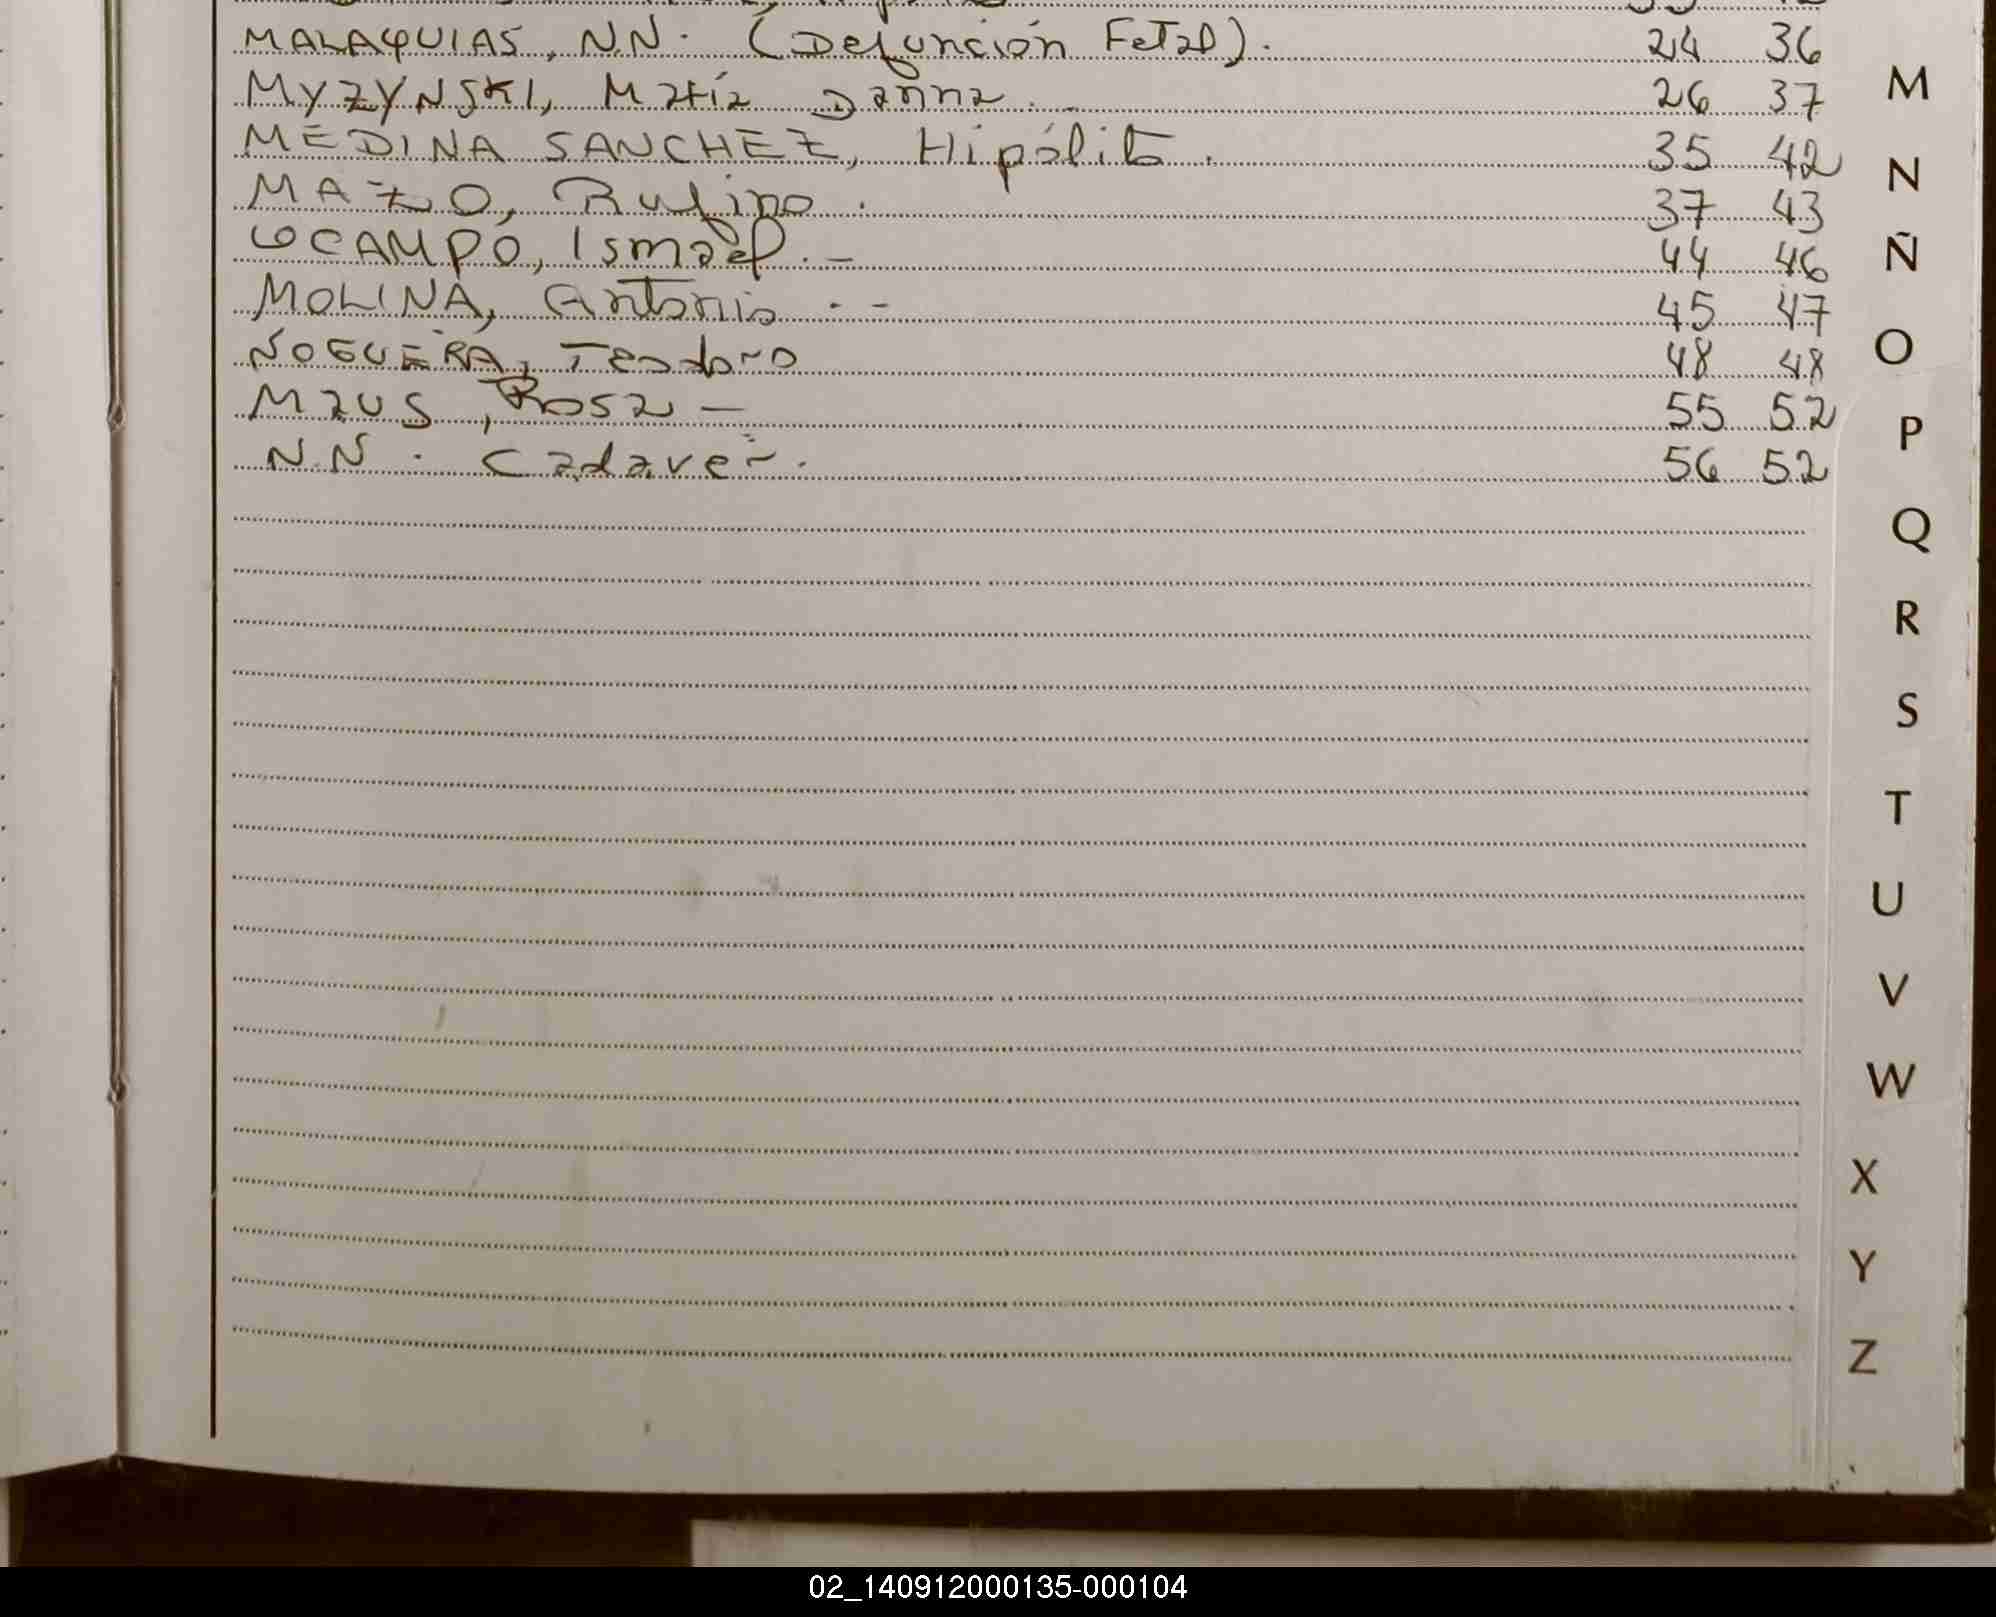 MALAQUIAS, N.N. (Defunción Fetal). 24 36
MYZYNSKI, María Danna. 26 37
MEDINA SANCHEZ, Hipólito. 35 42
MAZO, Rufino. 37 43
OCAMPO, Ismael. - 44 46
MOLINA, Antonio - - 45 47
NOGUERA, Teodoro 48 48
Maus, Rosa - 55 52
N.N. Cadaver. 56 52
M
N
Ñ
O
P
Q
R
S
T
U
V
W
X
Y
Z
02_140912000135-000104